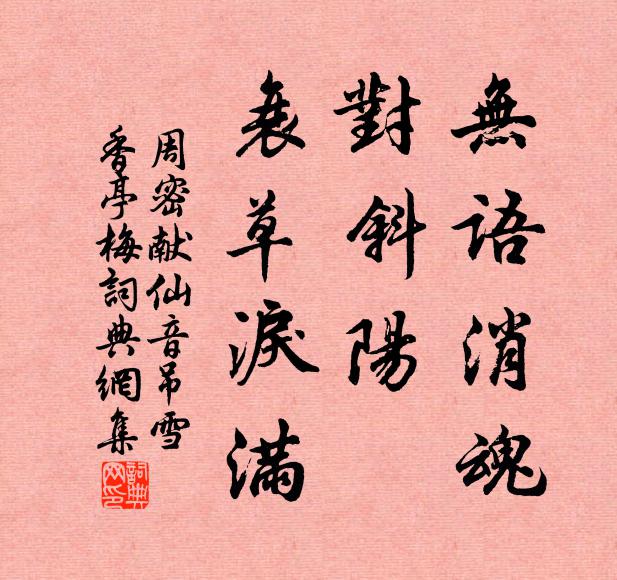 無語消魂
對斜陽
衰草淚滿
周密献仙音吊雪
香亭梅詞典網集
詞典
网印